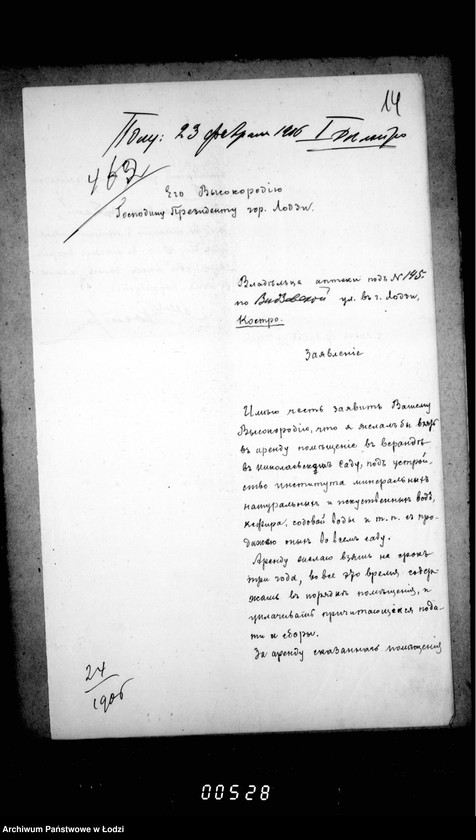 14
Полу: 23 февраля 1906 I
463
Его Высокородію
Господину Президенту гор. Лодзи.
Владѣльца аптеки подъ № 145.
по Видзевской ул. въ г. Лодзи,
Костро.
Заявленіе
Имѣю честь заявить Вашему
Высокородію, что я желалъ бы взять
въ аренду помѣщеніе въ верандѣ
въ Николаевскомъ Саду, подъ устрой-
ство института минеральныхъ
натуральныхъ и искуственныхъ водъ,
кефира, содовой воды и т. п. съ про-
дажею оныхъ во всемъ саду.
Аренду желаю взять на срокъ
три года, во все это время содер-
жать въ порядкѣ помѣщенія, и
уплачивать причитающіеся пода-
ти и сборы.
За аренду сказаннаго помѣщенія
24
1906
00528
Archiwum Państwowe w Łodzi